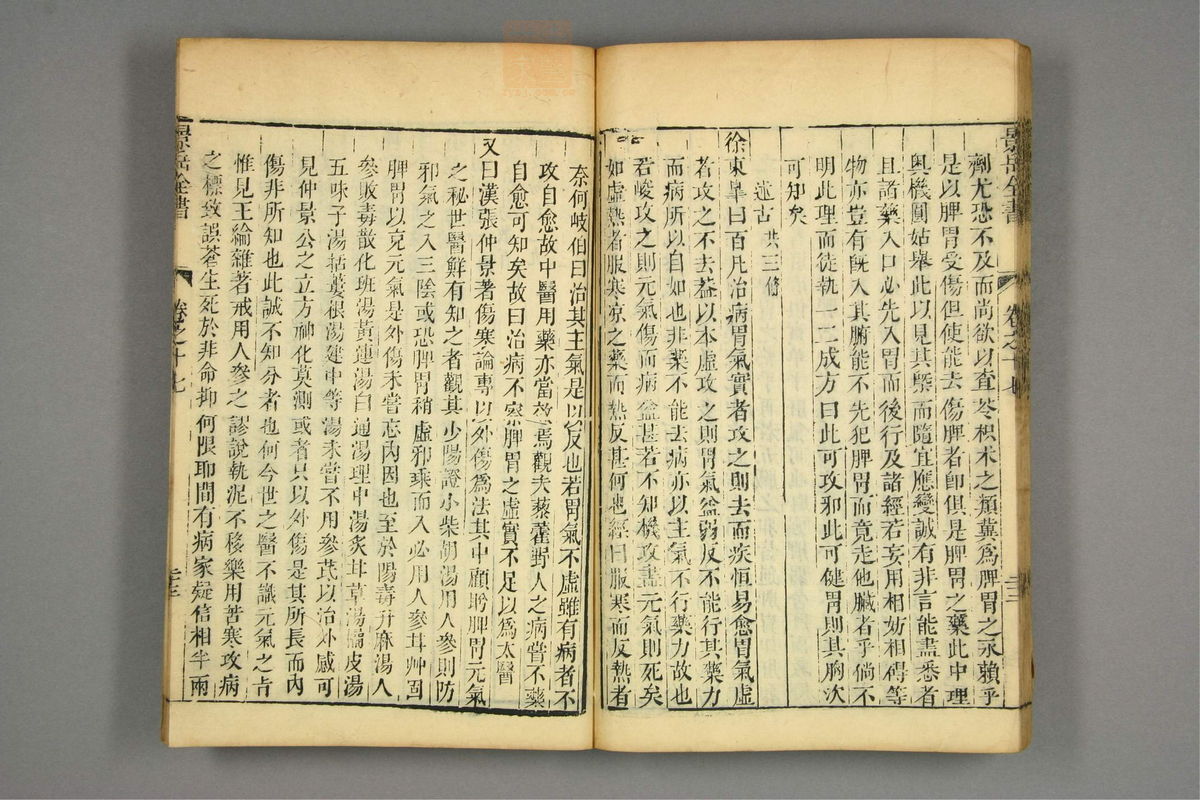 景岳全書 卷之十七
劑尤恐不及而尚欲以查苓枳朮之類冀為脾胃之永賴乎
是以脾胃受傷但使能去傷脾者即俱是脾胃之藥此中理
奧機圓姑舉此以見其槩而隨宜應變誠有非言能盡悉者
且諸藥入口必先入胃而後行及諸經若妄用相妨相碍等
物亦豈有既入其腑能不先犯脾胃而竟走他臟者乎倘不
明此理而徒執一二成方曰此可攻邪此可健胃則其胸次
可知矣
述古 共三條
徐東臯曰百凡治病胃氣實者攻之則去而疾恒易愈胃氣虛
者攻之不去葢以本虛攻之則胃氣益弱反不能行其藥力
而病所以自如也非藥不能去病亦以主氣不行藥力故也
若峻攻之則元氣傷而病益甚若不知機攻盡元氣則死矣
如虛熱者服寒凉之藥而熱反甚何也經曰服寒而反熱者
奈何岐伯曰治其主氣是以反也若胃氣不虛雖有病者不
攻自愈故中醫用藥亦當效焉觀夫藜藿野人之病嘗不藥
自愈可知矣故曰治病不察脾胃之虛實不足以為太醫
又曰漢張仲景著傷寒論專以外傷為法其中顧盻脾胃元氣
之秘世醫鮮有知之者觀其少陽證小柴胡湯用人參則防
邪氣之入三陰或恐脾胃稍虛邪乘而入必用人參甘艸固
脾胃以充元氣是外傷未嘗忘內因也至於陽毒升麻湯人
參敗毒散化斑湯黃連湯白通湯理中湯炙甘草湯橘皮湯
五味子湯栝蔞根湯建中等湯未嘗不用參芪以治外感可
見仲景公之立方神化莫測或者只以外傷是其所長而內
傷非所知也此誠不知分者也何今世之醫不識元氣之旨
惟見王綸雜著戒用人參之謬說執泥不移樂用苦寒攻病
之標致誤蒼生死於非命抑何限耶間有病家疑信相半兩
景岳全書 卷之十七